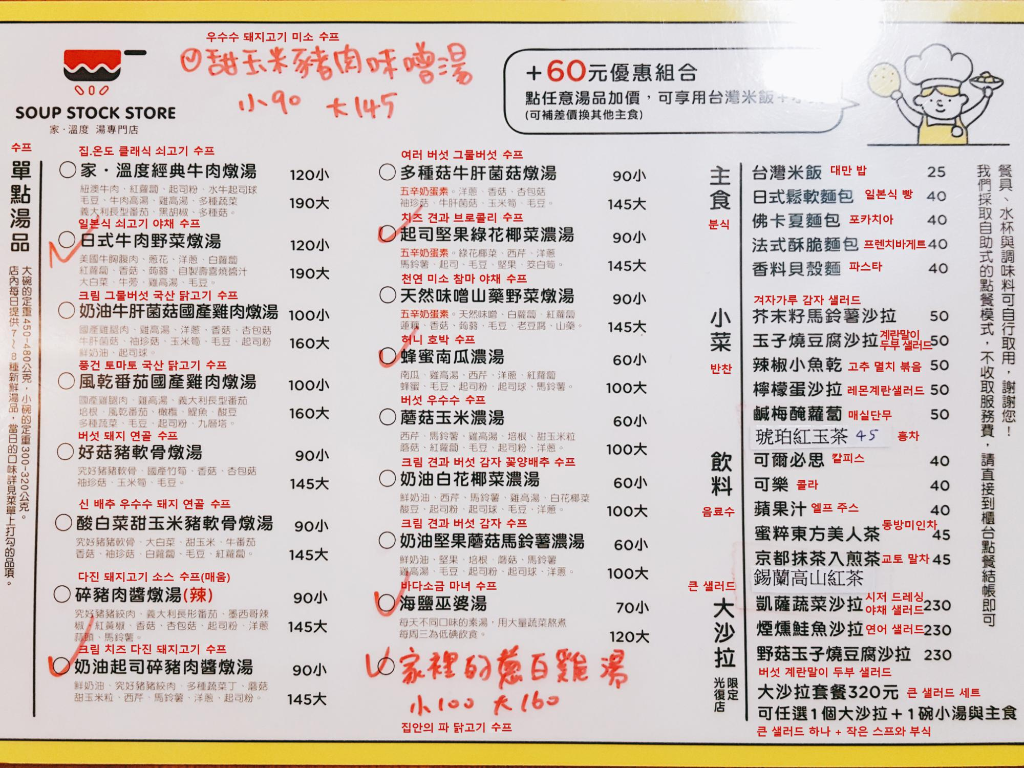 우수수 돼지고기 미소 수프
甜玉米豬肉味噌湯
小90 大145
SOUP STOCK STORE
家·溫度 湯專門店
+60元優惠組合
點任意湯品加價,可享用台灣米飯+小
(可補差價換其他主食)
수프
單點湯品
大碗的定重450-480公克,小碗的定重300-320公克。
店內每日提供7~8種新鮮湯品,當日的口味詳見菜單上打勾的品項。
집.온도 클래식 쇠고기 수프
家·溫度經典牛肉燉湯 120小
紐澳牛肉、紅蘿蔔、起司粉、水牛起司球
毛豆、牛肉高湯、雞高湯、多種蔬菜
義大利長型番茄、黑胡椒、多種菇。
190大
일본식 쇠고기 야채 수프
日式牛肉野菜燉湯 120小
美國牛胸腹肉、蔥花、洋蔥、白蘿蔔
紅蘿蔔、香菇、蒟蒻、自製壽喜燒醬汁
大白菜、牛蒡、雞高湯、毛豆。
190大
크림 그물버섯 국산 닭고기 수프
奶油牛肝菌菇國產雞肉燉湯 100小
國產雞腿肉、雞高湯、洋蔥、香菇、杏包菇
牛肝菌菇、袖珍菇、玉米筍、毛豆、起司粉
鮮奶油、起司球。
160大
풍건 토마토 국산 닭고기 수프
風乾番茄國產雞肉燉湯 100小
國產雞腿肉、雞高湯、義大利長型番茄
培根、風乾番茄、橄欖、鯷魚、酸豆
多種蔬菜、毛豆、起司粉、九層塔。
160大
버섯 돼지 연골 수프
好菇豬軟骨燉湯 90小
究好豬豬軟骨、國產竹筍、香菇、杏包菇
袖珍菇、玉米筍、毛豆。
145大
신 배추 우수수 돼지 연골 수프
酸白菜甜玉米豬軟骨燉湯 90小
究好豬豬軟骨、大白菜、甜玉米、牛番茄
香菇、袖珍菇、白蘿蔔、毛豆、紅蘿蔔。
145大
다진 돼지고기 소스 수프(매움)
碎豬肉醬燉湯(辣) 90小
究好豬豬絞肉、義大利長形番茄、墨西哥辣
椒、紅黃椒、香菇、杏包菇、起司粉、洋蔥
蒜頭、馬鈴薯。
145大
크림 치즈 다진 돼지고기 수프
奶油起司碎豬肉醬燉湯 90小
鮮奶油、究好豬豬絞肉、多種蔬菜丁、蘑菇
甜玉米粒、西芹、馬鈴薯、洋蔥、起司粉。
145大
여러 버섯 그물버섯 수프
多種菇牛肝菌菇燉湯 90小
五辛奶蛋素。洋蔥、香菇、杏包菇
袖珍菇、牛肝菌菇、玉米筍、毛豆。
145大
치즈 견과 브로콜리 수프
起司堅果綠花椰菜濃湯 90小
五辛奶蛋素。綠花椰菜、西芹、洋蔥
馬鈴薯、起司、毛豆、堅果、茭白筍。
145大
천연 미소 참마 야채 수프
天然味噌山藥野菜燉湯 90小
五辛奶蛋素。天然味噌、白蘿蔔、紅蘿蔔
蓮藕、香菇、蒟蒻、毛豆、老豆腐、山藥。
145大
허니 호박 수프
蜂蜜南瓜濃湯 60小
南瓜、雞高湯、西芹、洋蔥、紅蘿蔔
蜂蜜、毛豆、起司粉、起司球、馬鈴薯。
100大
버섯 우수수 수프
蘑菇玉米濃湯 60小
西芹、馬鈴薯、雞高湯、培根、甜玉米粒
蘑菇、紅蘿蔔、毛豆、起司粉、洋蔥。
100大
크림 견과 버섯 감자 꽃양배추 수프
奶油白花椰菜濃湯 60小
鮮奶油、西芹、馬鈴薯、雞高湯、白花椰菜
酸豆、起司粉、起司球、毛豆、洋蔥。
100大
크림 견과 버섯 감자 수프
奶油堅果蘑菇馬鈴薯濃湯 60小
鮮奶油、堅果、培根、蘑菇、馬鈴薯
雞高湯、毛豆、起司粉、起司球、洋蔥。
100大
바다소금 마녀 수프
海鹽巫婆湯 70小
每天不同口味的素湯,用大量蔬菜熬煮
每周三為低碘飲食。
120大
家裡的蔥白雞湯
小100 大160
집안의 파 닭고기 수프
主食
분식
台灣米飯 대만 밥 25
日式鬆軟麵包 일본식 빵 40
佛卡夏麵包 포카치아 40
法式酥脆麵包 프렌치바게트 40
香料貝殼麵 파스타 40
小菜
반찬
겨자가루 감자 샐러드
芥末籽馬鈴薯沙拉 50
玉子燒豆腐沙拉 계란말이 두부 샐러드 50
辣椒小魚乾 고추 멸치 볶음 50
檸檬蛋沙拉 레몬계란샐러드 50
鹹梅醃蘿蔔 매실단무 50
飲料
음료수
琥珀紅玉茶 45 홍차
可爾必思 칼피스 40
可樂 콜라 40
蘋果汁 엘프 주스 40
蜜粹東方美人茶 동방미인차 45
京都抹茶入煎茶 교토 말차 45
錫蘭高山紅茶
큰 샐러드
大沙拉
限定
光復店
凱薩蔬菜沙拉 시저 드레싱 야채 샐러드 230
煙燻鮭魚沙拉 연어 샐러드 230
野菇玉子燒豆腐沙拉 230
버섯 계란말이 두부 샐러드
大沙拉套餐320元 큰 샐러드 세트
可任選1個大沙拉+1碗小湯與主食
큰 샐러드 하나 + 작은 스프와 부식
餐具、水杯與調味料可自行取用,謝謝您!
我們採取自助式的點餐模式,不收取服務費,請直接到櫃台點餐結帳即可